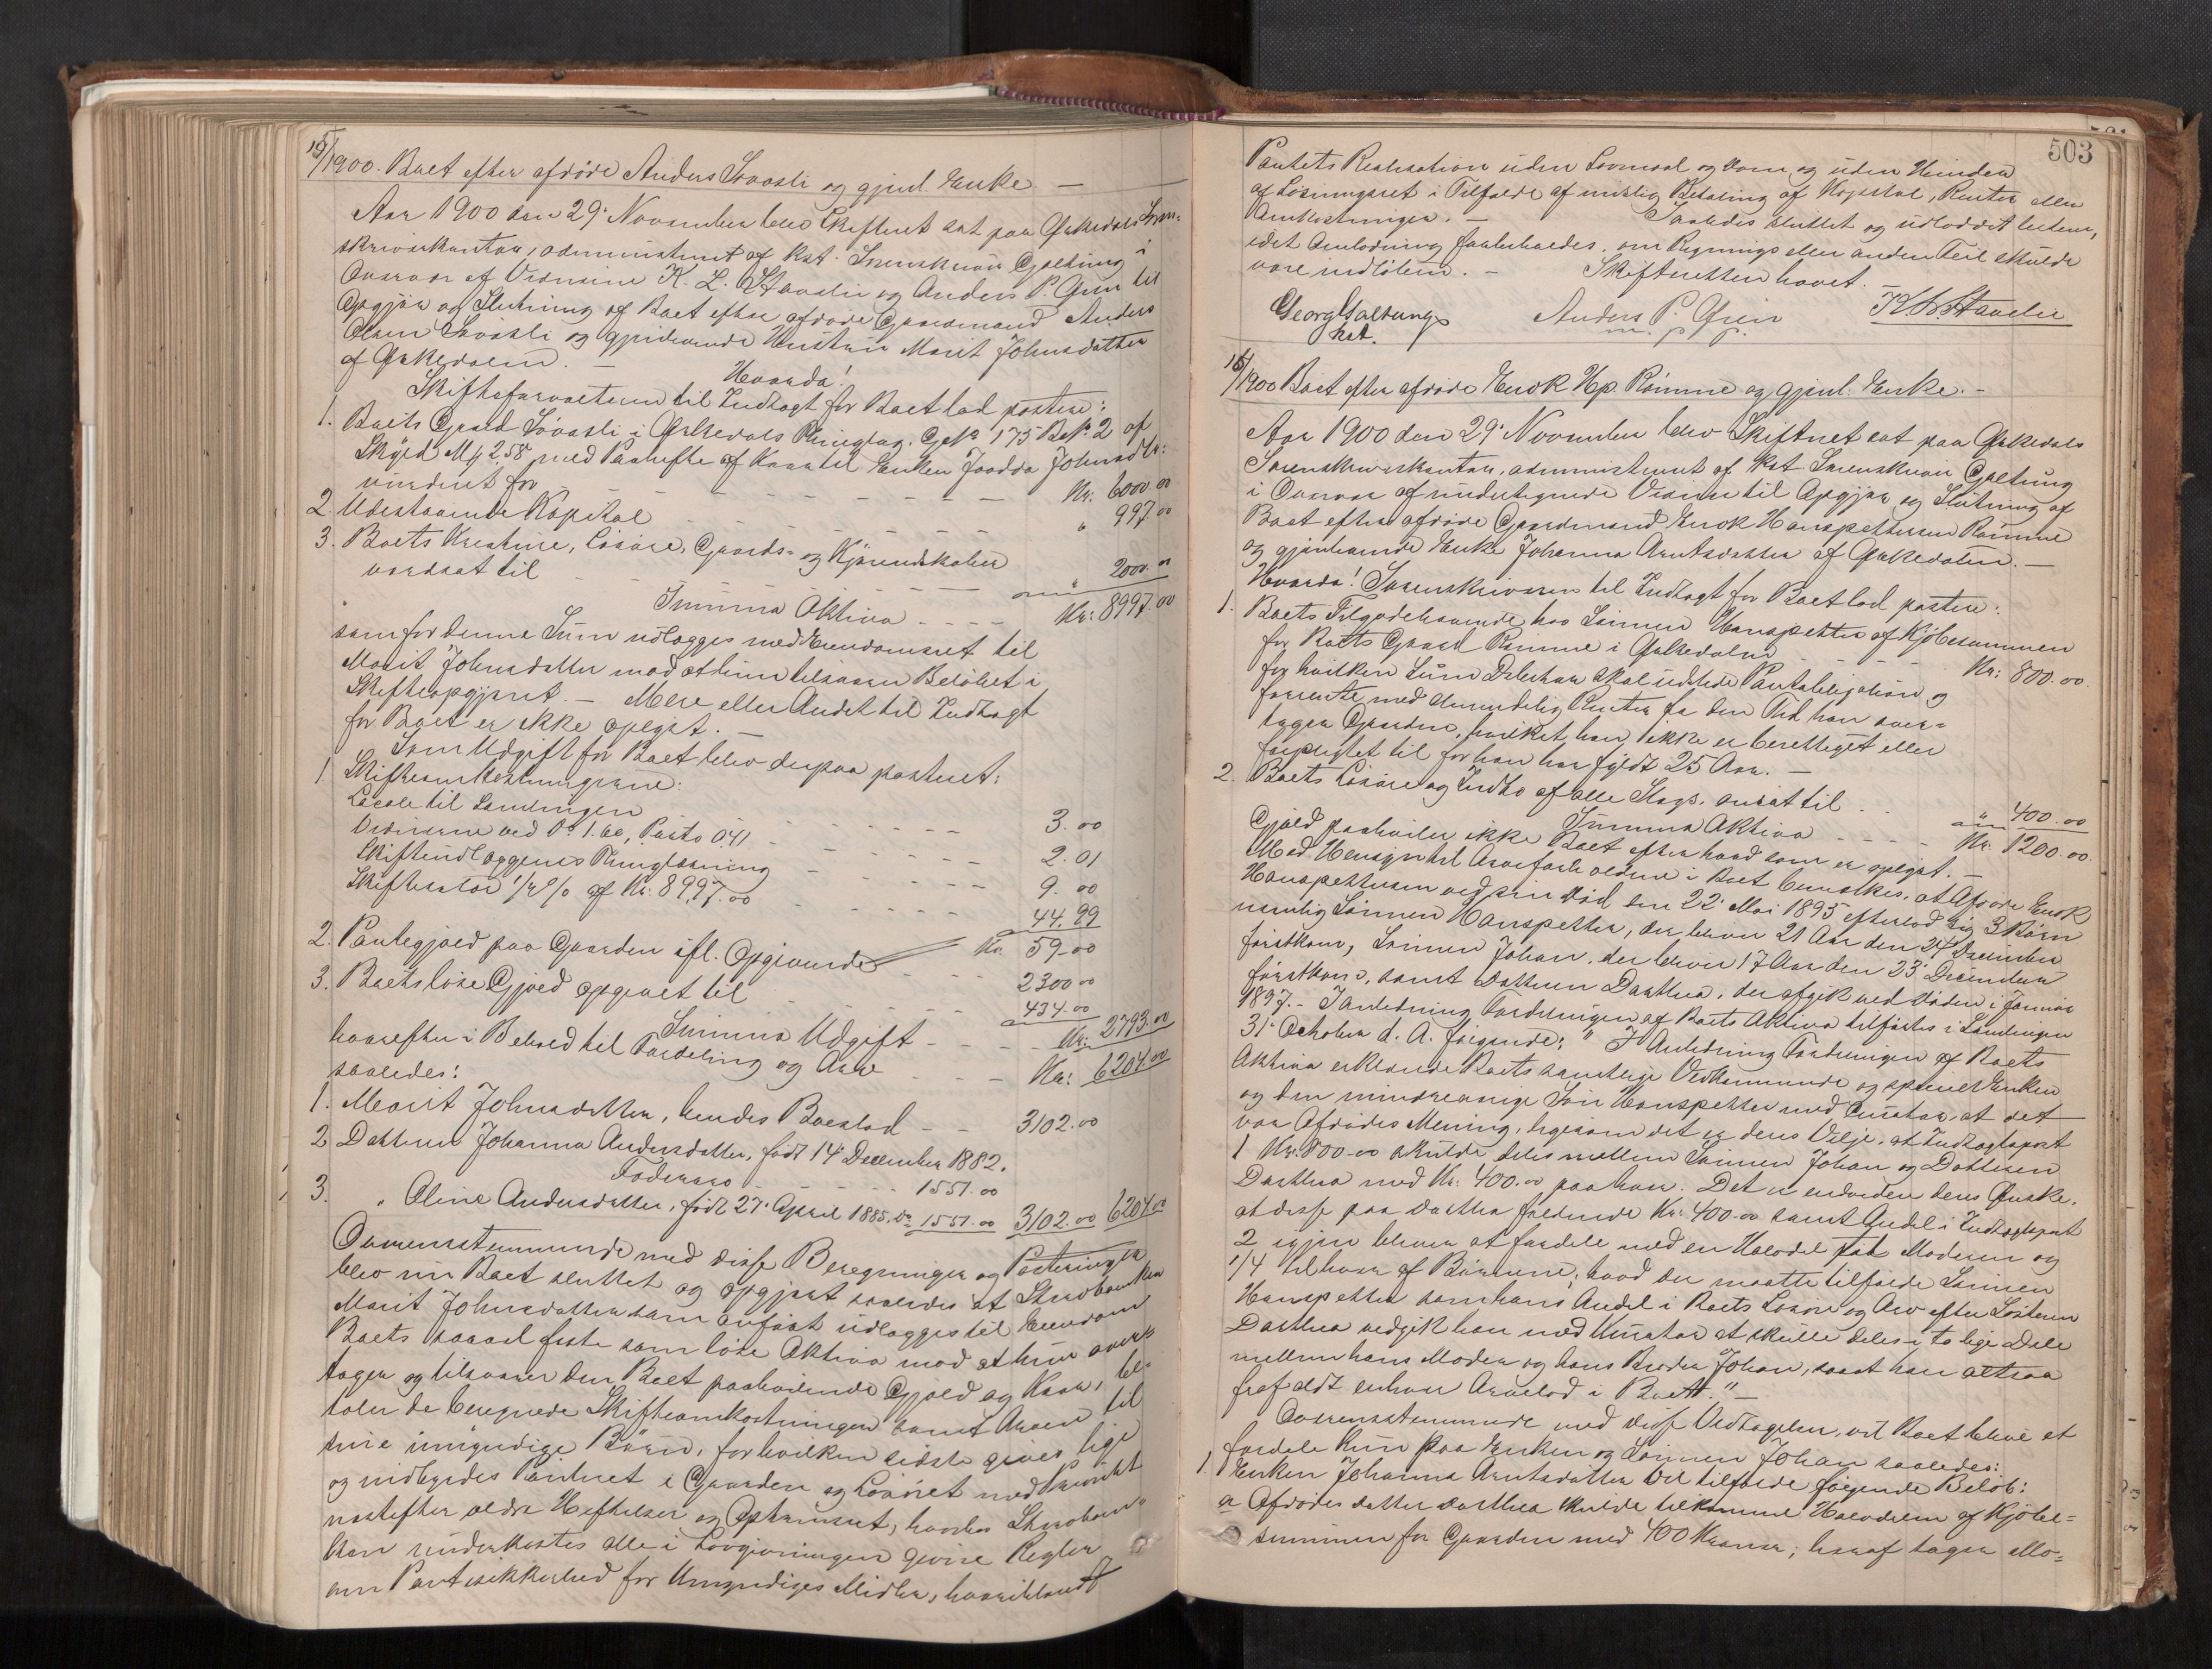 15/1900. Boet efter afdøde Anders Lovasli og gjenl. Enke. —
Aar 1900 den 29' November blev Skifteret sat paa Orkedals Soren=
skriverkontor, administreret af kst. Sorenskriver Galtung i
Overvær af Vidnerne K. L. Stavlie og Anders P. Gren til
Opgjør og Slutning af Boet efter afdøde Gaardmand Anders
Olsen Lovasli og gjenlevende Hustru Marit Johnsdatter
af Orkedalen. —
Hvorda!
Skifteforvalteren til Indtægt for Boet lod postere:
1. Boets Gaard Lovasli i Orkedals Thinglag. G. № 175 B. № 2 af
Skyld M 2.58 med Paahefte af Kaar til Enken Jordda Johnsdtr:
vurderet for - - - - - - - - Kr: 6000.00
2. Udestaaende Kapital - - - - - - - " 997.00
3. Boets Kreature, Løsøre, Gaards- og Kjøreredskaber
værdsat til - - - - - - - " 2000.00
Summa Aktiva - - - - Kr: 8997.00
som for denne Sum udlægges med Eiendomsret til
Marit Johnsdatter mod at hun tilsvarer Beløbet i
Skifteopgjøret. — Mere eller Andet til Indtægt
for Boet er ikke opgivet. —
Som Udgift for Boet blev derpaa posteret:
1. Skifteomkostningerne:
Locale til Samlingen - - - - - - 3.00
Vidnerne ved Do 1.60, Porto 0.41 - - - - - 2.01
Skifteudlæggenes Thinglæsning - - - - - 9.00
Skifteskat 1/2 % af Kr. 8997.00 - - - - 44.99
Kr. 59.00
2. Pantegjæld paa Gaarden ifl. Opgivende - - - 2300.00
3. Boets løse Gjæld opgivet til - - - - - 434.00
Summa Udgift - - - Kr. 2793.00
hvorefter i Behold til Fordeling og Arv - - - Kr: 6204.00
saaledes:
1. Marit Johnsdatter, hendes Boeslod - - 3102.00
2. Datteren Johanna Andersdatter, født 14' December 1882.
Fædrearv - - - - - 1551.00
3. " Oline Andersdatter, født 27' April 1885. do 1551.00 3102.00 6204.00
Overensstemmende med disse Beregninger og Posteringer
blev nu Boet sluttet og opgjort saaledes at Stervboenken
Marit Johnsdatter som anført udlægges til Eiendom
Boets saavel faste som løse Aktiva mod at hun over=
tager og tilsvarer den Boet paahvilende Gjæld og Kaar, be=
taler de beregnede Skifteomkostninger samt Arven til
sine umyndige Børn, for hvilken sidste gives lige
og midbyrdes Panteret i Gaarden og Løsøret med Prioritet
næstefter ældre Heftelser og Opkræveret, hvorhos Stervboen=
ken underkastes alle i Lovgivningen givne Regler
om Pantesikkerhed for Umyndiges Midler, hvoriblandt
503
Pantets Realisation uden Lovmaal og Dom og uden Hinder
af Løsningsret i Tilfælde af mislig Betaling af Kapital, Renter eller
Omkostninger. — Saaledes sluttet og udloddet bestem,
idet Omlodning forbeholdes, om Regnings eller anden Feil skulde
være indløben. — Skifteretten hævet. —
Georg Galtung
kst.
Anders P. Gren
m. p. p.
K L Stavlie
16/1900 Boet efter afdøde Enok Hp. Rømme og gjenl. Enke. —
Aar 1900 den 29' November blev Skifteret sat paa Orkedals
Sorenskriverkontor, administreret af kst. Sorenskriver Galtung
i Overvær af undertegnede Vidner til Opgjør og Slutning af
Boet efter afdøde Gaardmand Enok Hanspettersen Rømme
og gjenlevende Enke Johanna Arntsdatter af Orkedalen. —
Hvorda! Sorenskriveren til Indtægt for Boet lod postere:
1. Boets Tilgodehavende hos Sønnen Hanspetter af Kjøbesummen
for Boets Gaard Rømme i Orkedalen - - - - Kr: 800.00
for hvilken Sum Debitor skal udstede Pantobligation og
forrente med almindelig Renter fra den Tid han over=
tager Gaarden, hvilket han ikke er berettiget eller
forpligtet til før han har fyldt 25 Aar. —
2. Boets Løsøre og Indbo af alle Slags, ansat til - - " 400.00
Summa Aktiva - - - - Kr. 1200.00
Gjæld paahviler ikke Boet efter hvad som er opgivet. —
Med Hensyn til Arveforholdene i Boet bemærkes, at Afdøde Enok
Hanspettersen ved sin Død den 22' Mai 1895 efterlod sig 3 Børn
nemlig Sønnen Hanspetter, der bliver 21 Aar den 24' December
førstkom, Sønnen Johan, der bliver 17 Aar den 23' December
førstkom, samt Datteren Dorthea, der afgik ved Døden i Januar
1897. — I Anledning Fordelingen af Boets Aktiva tilførtes i Samlingen
31' October d. A. følgende: " I Anledning Fordelingen af Boets
Aktiva erklærede Boets samtlige Vedkommende og specielt Enken
og den mindreaarige Søn Hanspetter med Curator, at det
var Afdødes Mening, ligesom det er deres Vilje, at Indtægtspost
1 Kr. 800.00 skulde deles mellem Sønnen Johan og Datteren
Dorthea med Kr: 400.00 paa hver. Det er endvidere deres Ønske,
at disse paa Dorthea faldende Kr: 400.00 samt Andel i Indtægtspost
2 igjen bliver at fordele med en Halvdel paa Moderen og
1/4 til hver af Børnene; hvad der maatte tilfalde Sønnen
Hanspetter som hans Andel i Boets Løsøre og Arv efter Søsteren
Dorthea vedgik han med Curator at skulle deles i to lige Dele
mellem hans Moder og hans Broder Johan, saa at han altsaa
frafaldt enhver Arvelod i Boet." —
Overensstemmende med disse Vedtagelser, vil Boet blive at
fordele kun paa Enken og Sønnen Johan saaledes:
1. Enken Johanna Arntsdatter vil tilfalde følgende Beløb:
a Afdødes Datter Dorthea skulde tilkomme Halvdelen af Kjøbe=
summen for Gaarden med 400 Kroner; heraf tager Mo=